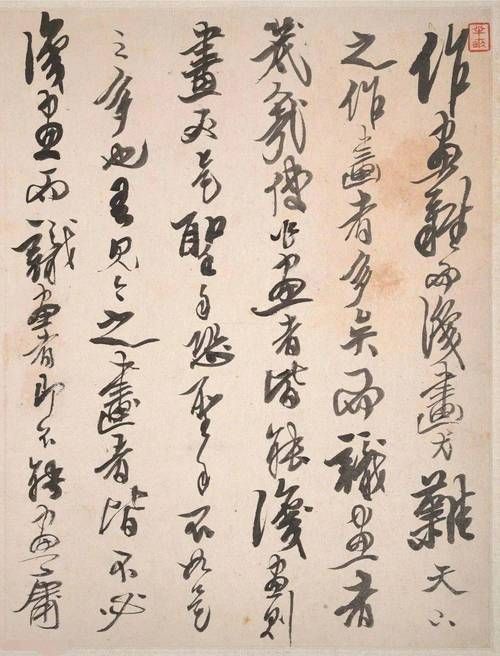 作畫難而識畫尤難天下
之作畫者多矣而識畫者
幾哉使作畫者皆能識畫則
畫是聖手恐聖手不如是
之多也見今之畫者皆不必
識畫而識畫者即不能畫庸